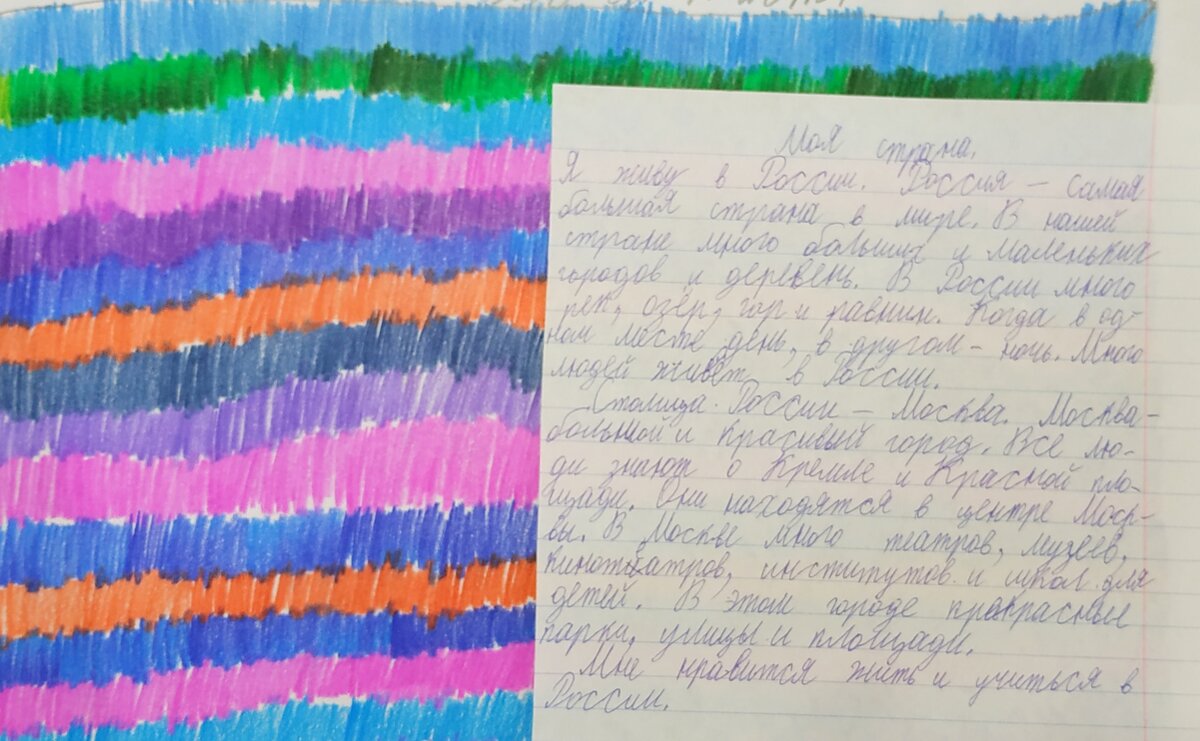 Моя страна.
Я живу в России. Россия – самая
большая страна в мире. В нашей
стране много больших и маленьких
городов и деревень. В России много
рек, озёр, гор и равнин. Когда в од-
ном месте день, в другом – ночь. Много
людей живёт в России.
Столица России – Москва. Москва –
большой и красивый город. Все лю-
ди знают о Кремле и Красной пло-
щади. Они находятся в центре Моск-
вы. В Москве много театров, музеев,
кинотеатров, институтов и школ для
детей. В этом городе прекрасные
парки, улицы и площади.
Мне нравится жить и учиться в
России.